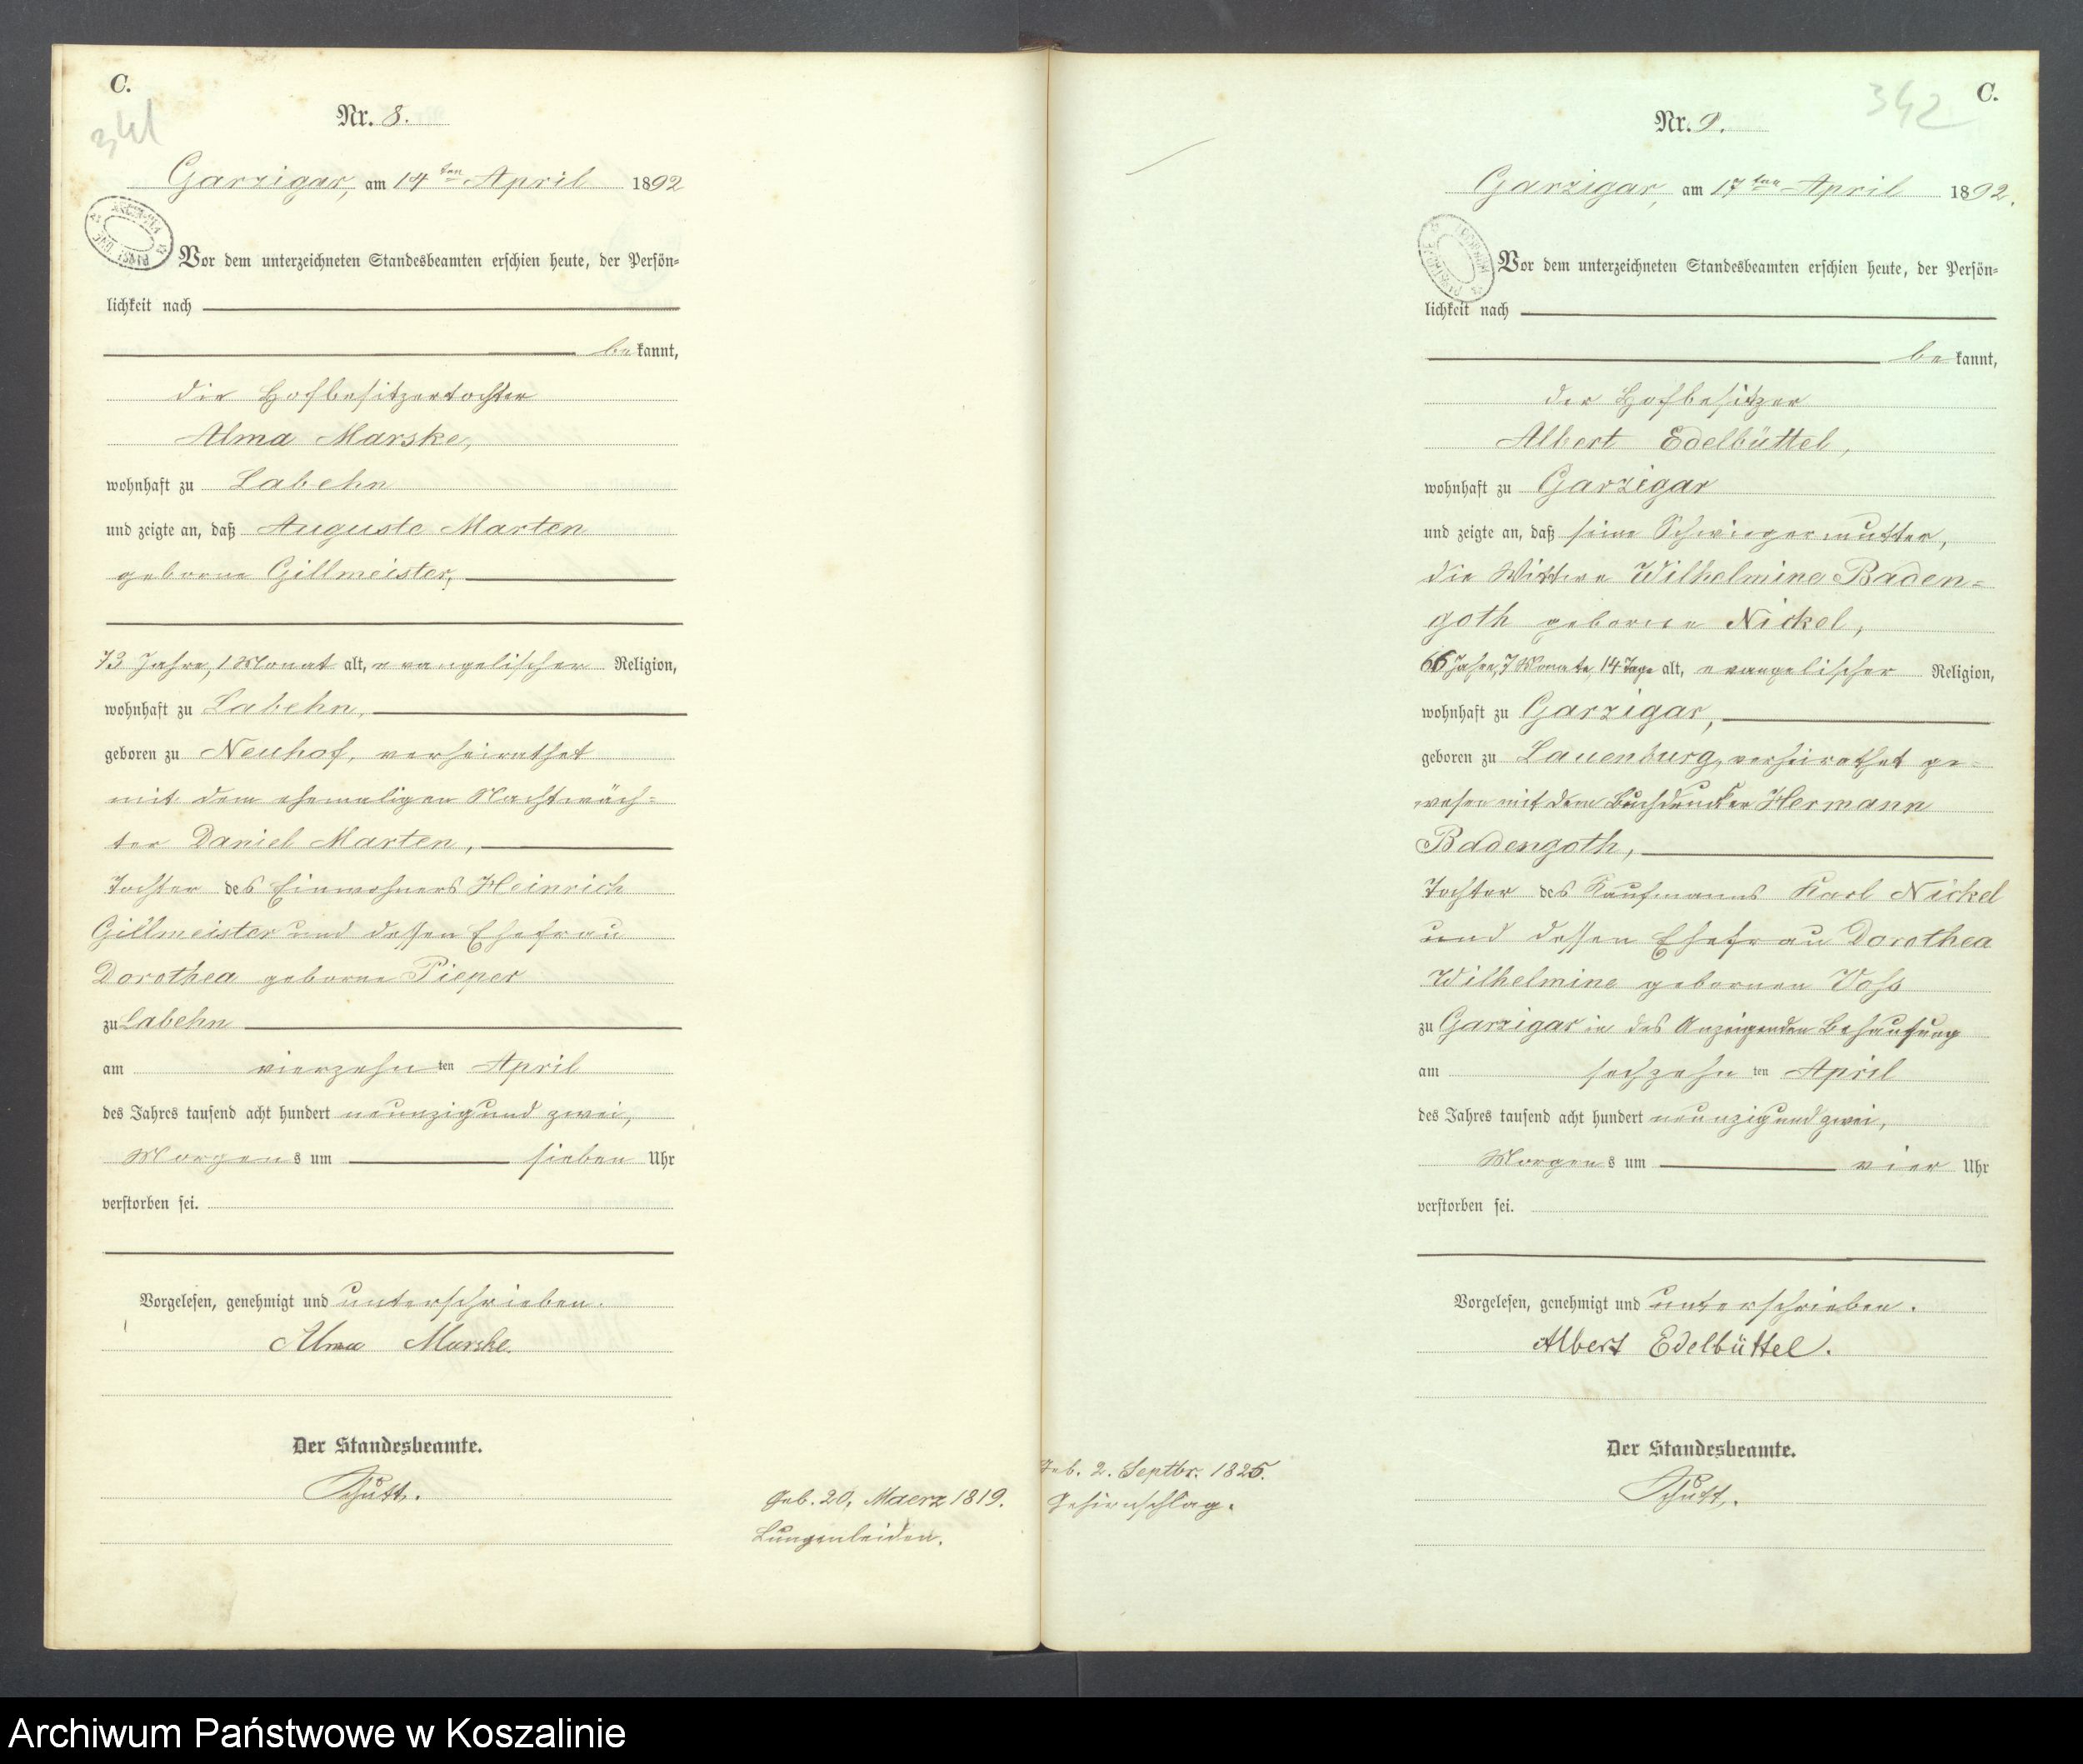 C.
341
Nr. 8.
Garzigar, am 14ten April 1892
Vor dem unterzeichneten Standesbeamten erschien heute, der Persön-
lichkeit nach
bekannt,
die Hofbesitzertochter
Alma Marske,
wohnhaft zu Labehn
und zeigte an, daß Auguste Marten
geborne Gillmeister,
73 Jahre, 1 Monat alt, evangelischer Religion,
wohnhaft zu Labehn,
geboren zu Neuhof, verheirathet
mit dem ehemaligen Nachtwäch-
ter Daniel Marten,
Tochter des Einwohners Heinrich
Gillmeister und dessen Ehefrau
Dorothea geborne Pieper
zu Labehn
am vierzehnten April
des Jahres tausend acht hundert neunzig und zwei,
Morgens um sieben Uhr
verstorben sei.
Vorgelesen, genehmigt und unterschrieben.
Alma Marske.
Der Standesbeamte.
Schütt.
Geb. 20. Maerz 1819.
Lungenleiden.
342
C.
Nr. 9.
Garzigar, am 17ten April 1892.
Vor dem unterzeichneten Standesbeamten erschien heute, der Persön-
lichkeit nach
bekannt,
der Hofbesitzer
Albert Edelbüttel,
wohnhaft zu Garzigar
und zeigte an, daß seine Schwiegermutter,
die Wittwe Wilhelmine Baden-
goth geborne Nickel,
66 Jahre, 7 Monate, 14 Tage alt, evangelischer Religion,
wohnhaft zu Garzigar,
geboren zu Lauenburg, verheirathet ge-
wesen mit dem Buchdrucker Hermann
Badengoth,
Tochter des Kaufmanns Karl Nickel
und dessen Ehefrau Dorothea
Wilhelmine gebornen Voss
zu Garzigar in des Anzeigenden Behausung
am sechzehnten April
des Jahres tausend acht hundert neunzig und zwei,
Morgens um vier Uhr
verstorben sei.
Vorgelesen, genehmigt und unterschrieben.
Albert Edelbüttel.
Der Standesbeamte.
Schütt.
Geb. 2. Septbr. 1825.
Gehirnschlag.
Archiwum Państwowe w Koszalinie